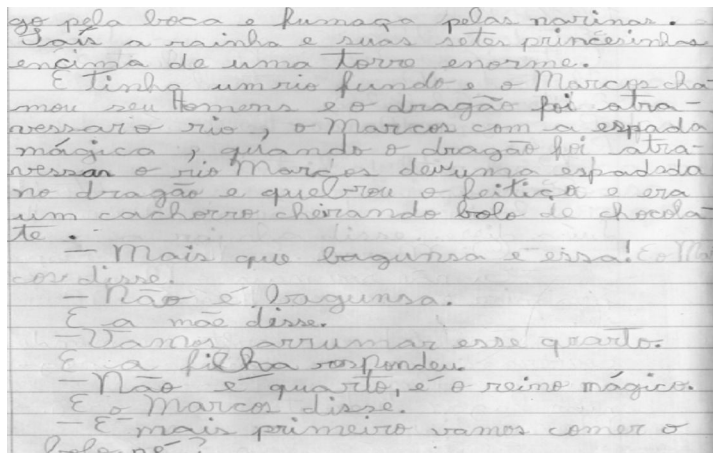 go pela boca e fumaça pelas narinas.
Taís a rainha e suas setes princesinhas
encima de uma torre enorme.
E tinha um rio fundo e o Marcos cha-
mou seu Homens e o dragão foi atra-
vessar o rio, o Marcos com a espada
mágica, quando o dragão foi atra-
vessar o rio Marcos deu uma espadada
no dragão e quebrou o feitiço e era
um cachorro cheirando bolo de chocola-
te.
— Mais que bagunsa é essa! E o Mar
cos disse.
— Não é bagunsa.
E a mãe disse.
— Vamos arrumar esse quarto.
E a filha respondeu.
— Não é quarto, é o reino mágico.
E o Marcos disse.
— E mais primeiro vamos comer o
bolo né?